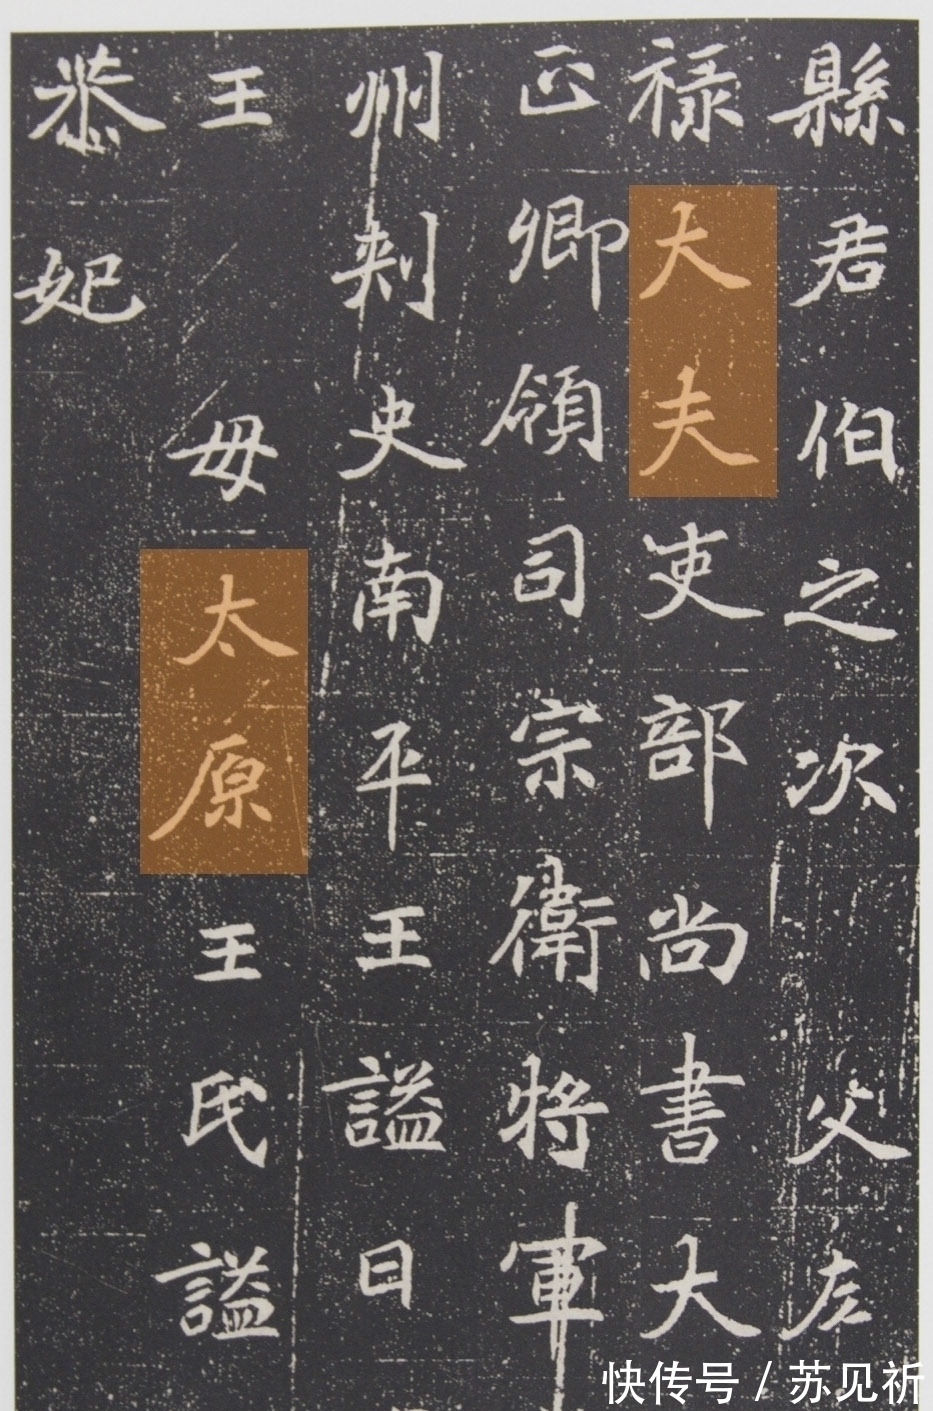 縣君伯之次父左
禄大夫吏部尚書大
正卿領司宗衛將軍
州刺史南平王謚曰
王母太原王氏謚
恭妃
快传号 / 苏见祈